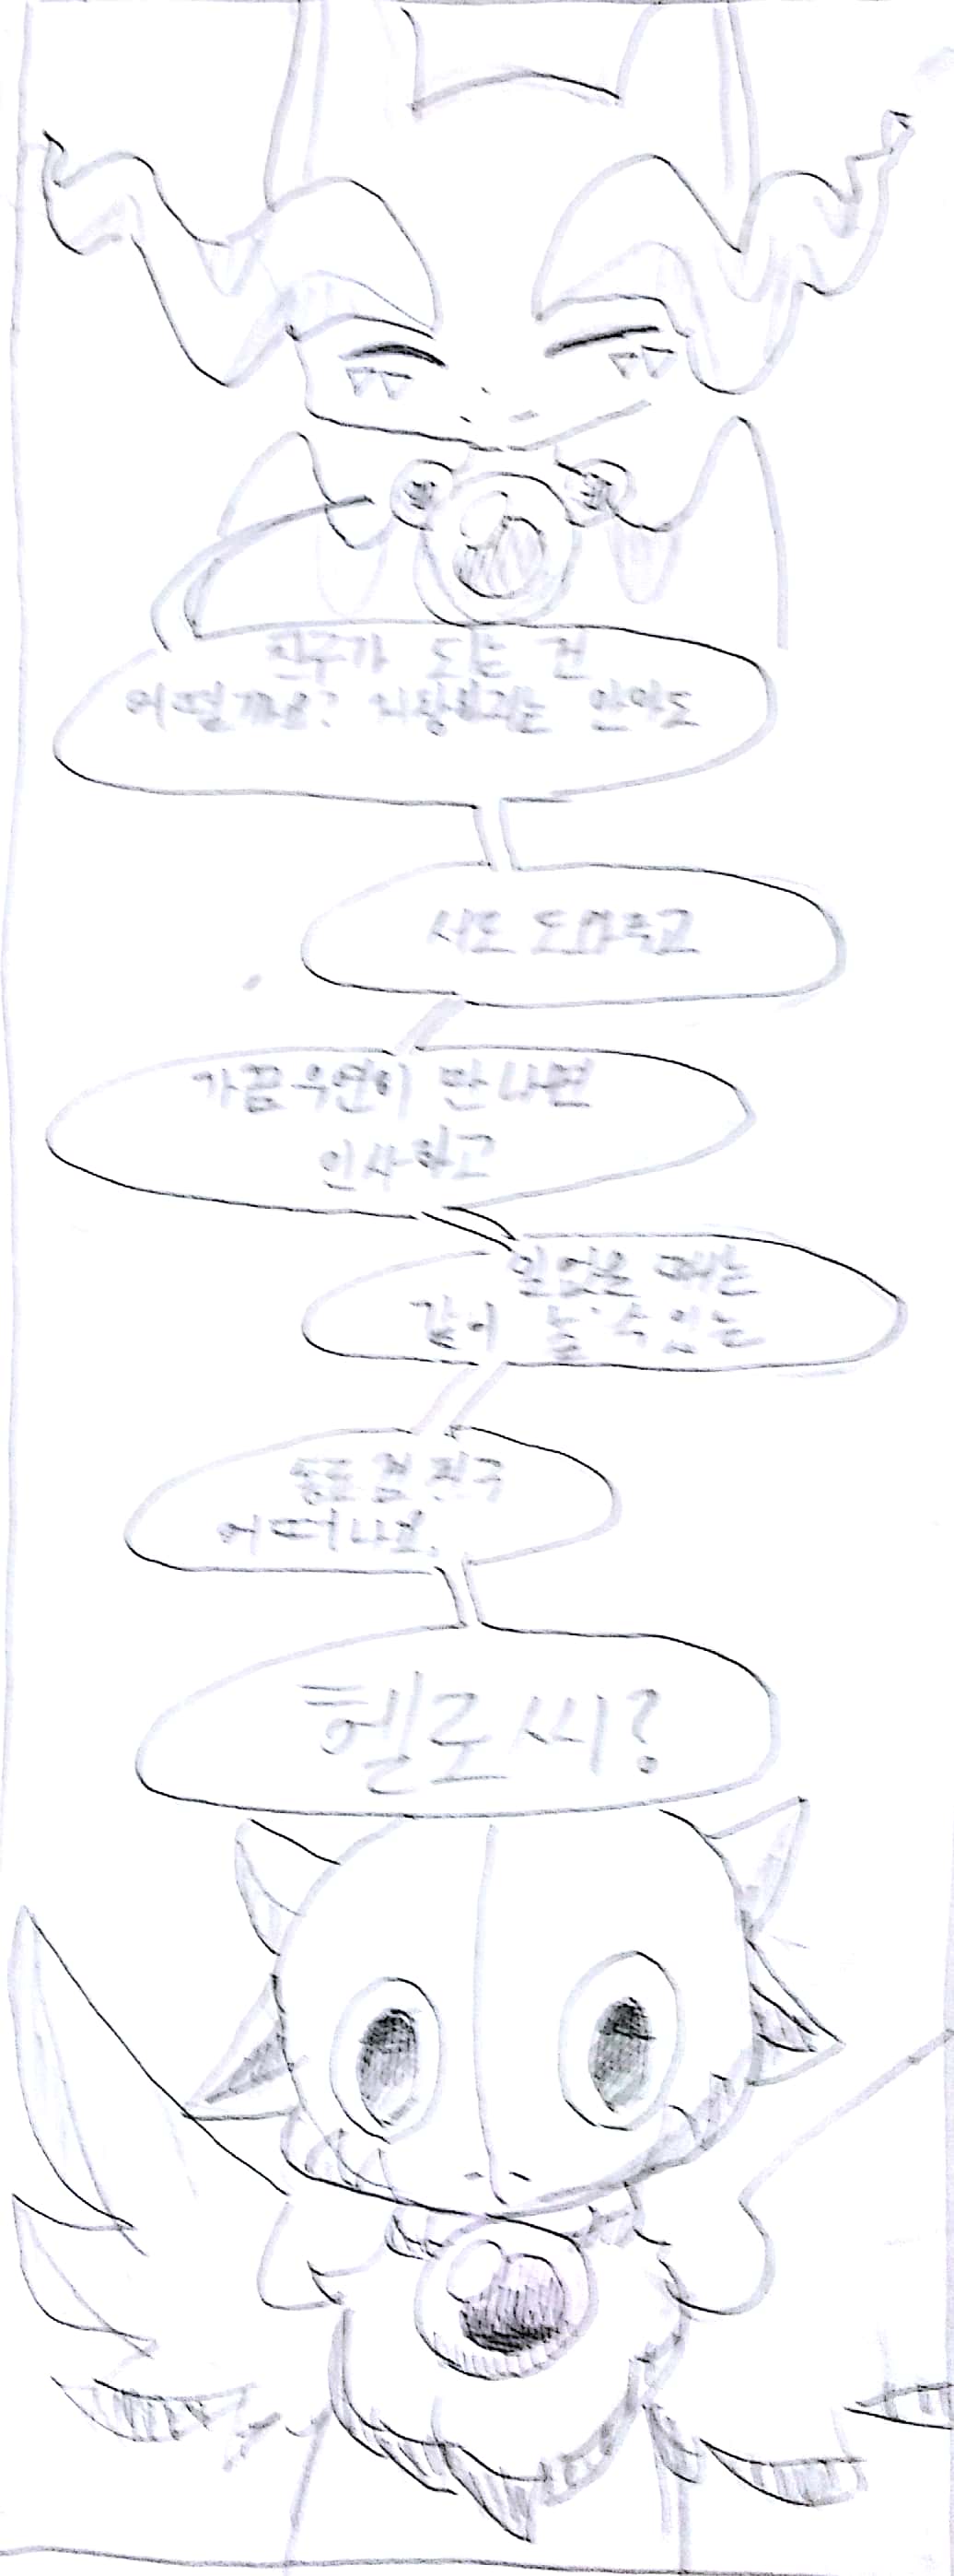 친구가 되는 건
어떨까요? 희망하는 만약도
서로 도와주고
가끔 우연이 만나면
인사하고
일없을 때는
같이 놀 수 있는
동료 겸 친구
어떠나요.
헬로 씨?